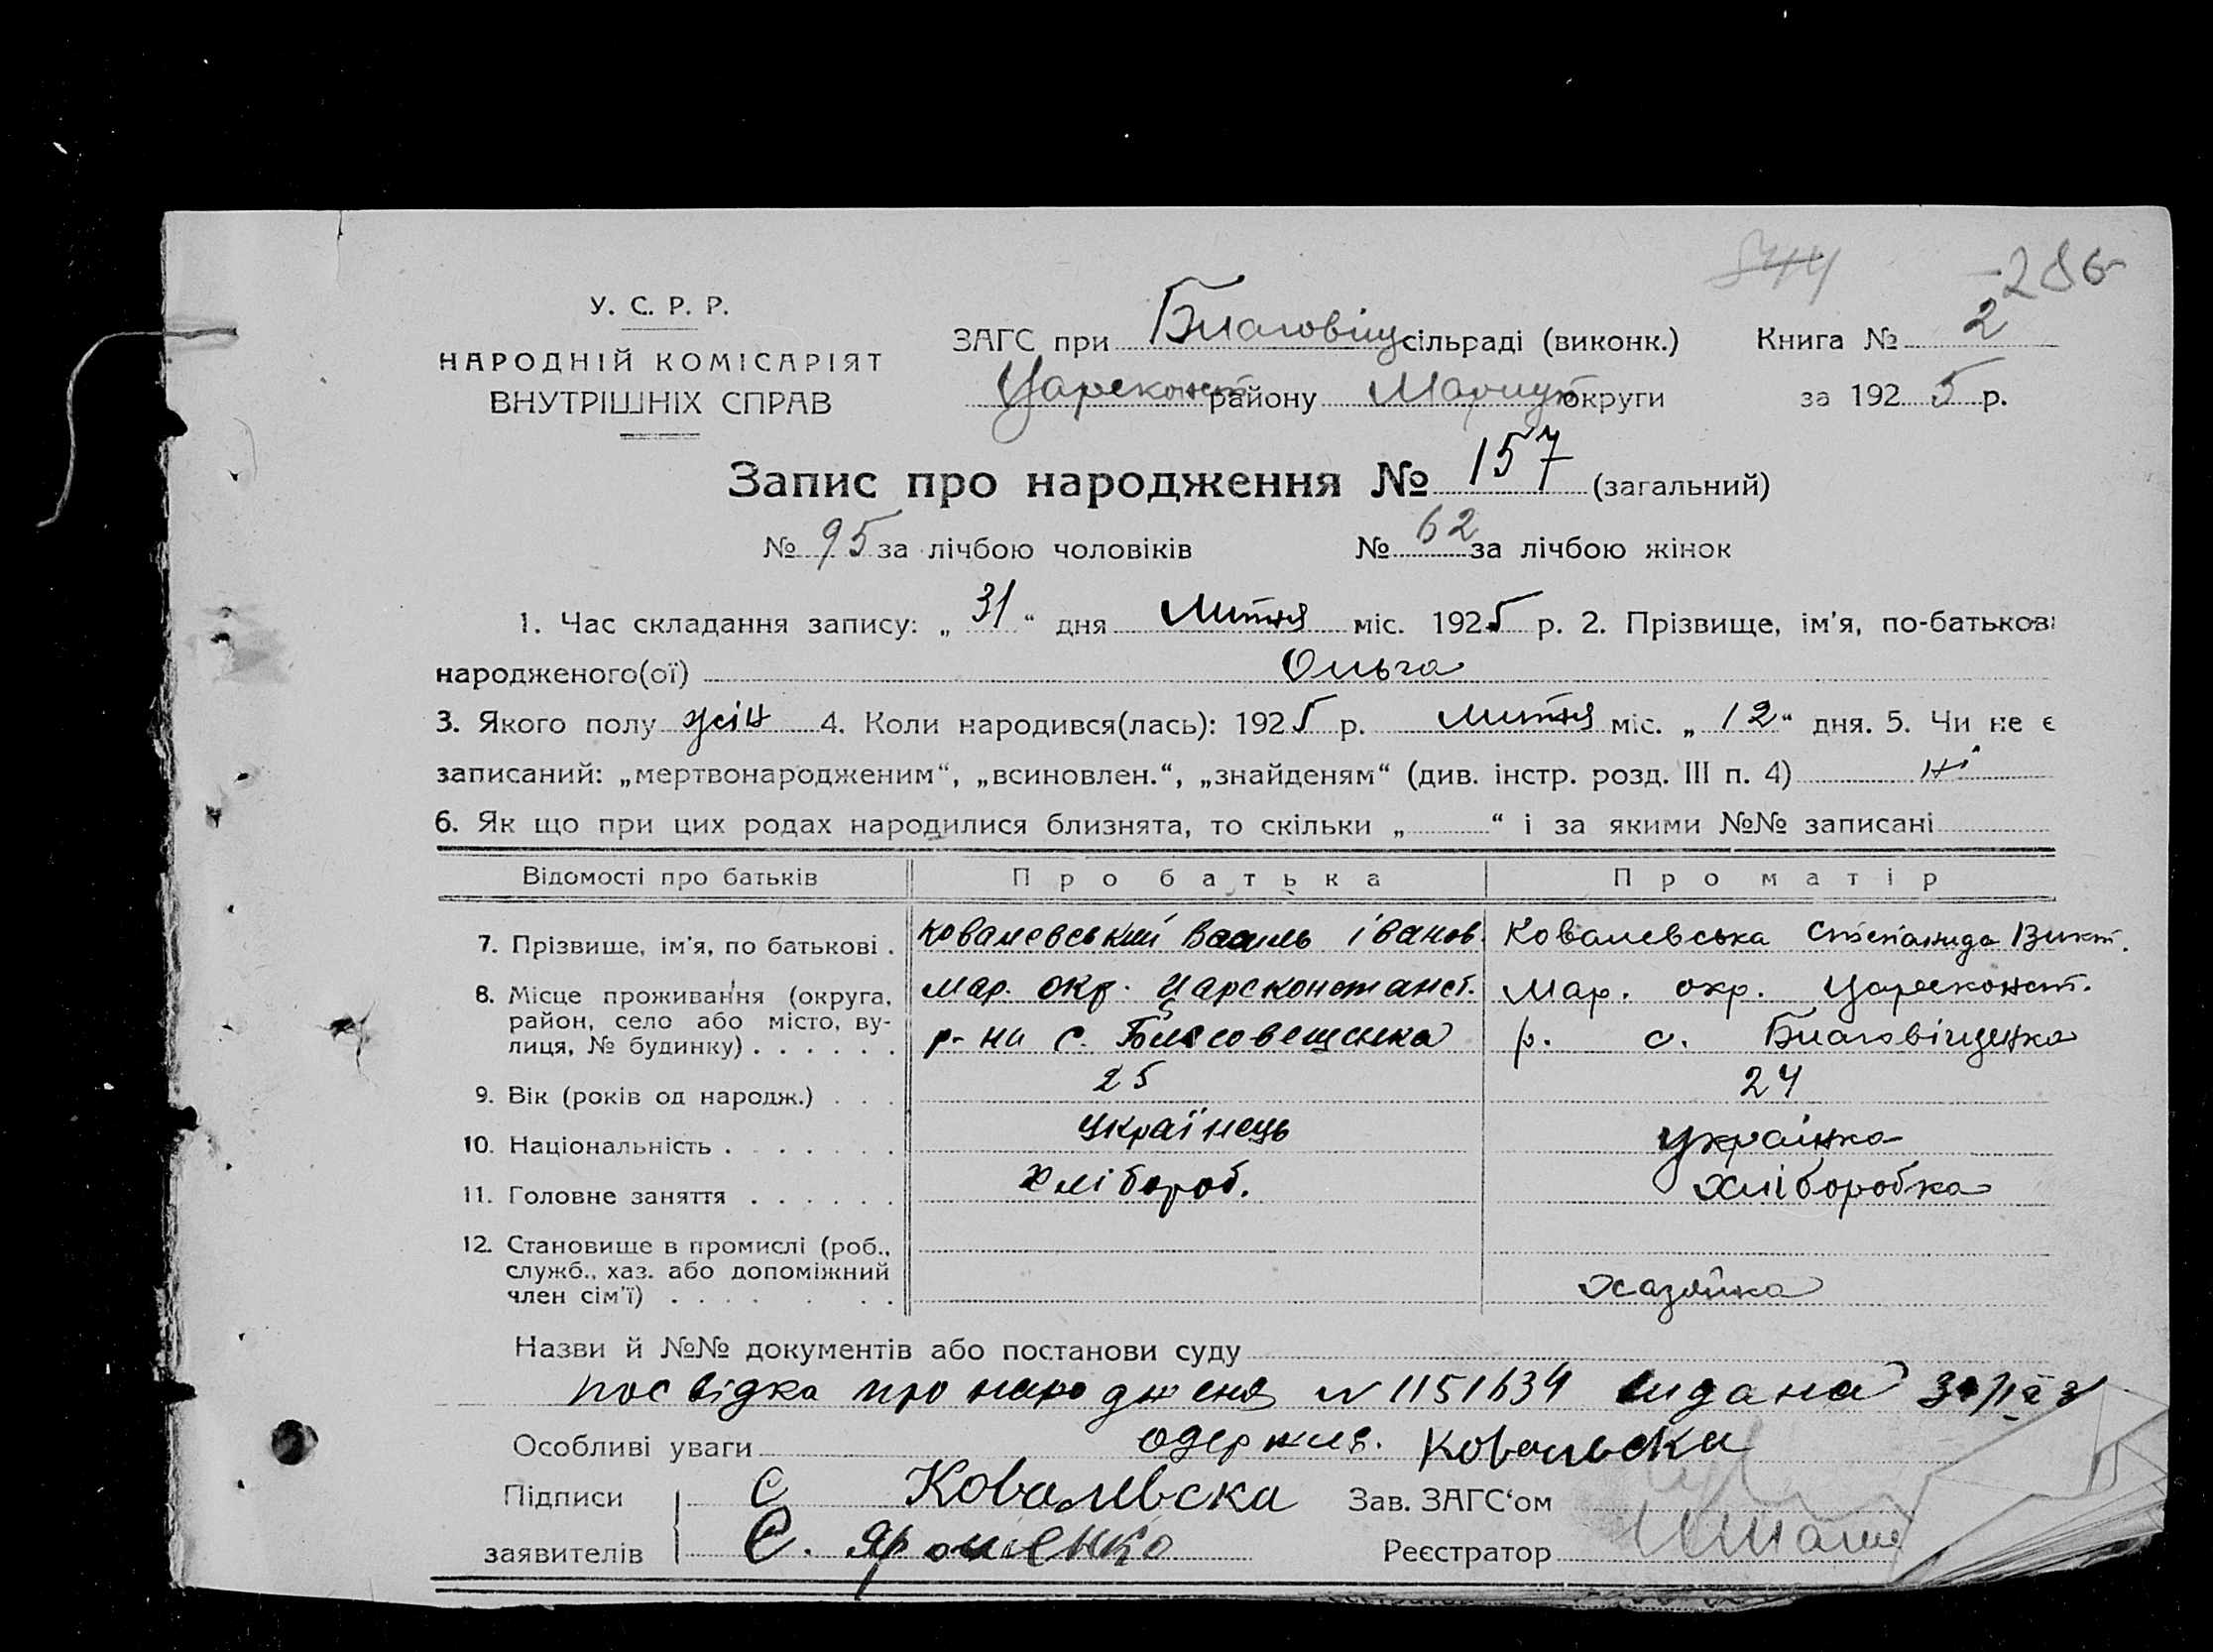 544 286
У. С. Р. Р.
НАРОДНІЙ КОМІСАРІЯТ
ВНУТРІШНІХ СПРАВ
ЗАГС при Благовіщ сільраді (виконк.) Книга № 2
Царекконст району Маріуп округи за 1925 р.
Запис про народження № 157 (загальний)
№ 95 за лічбою чоловіків № 62 за лічбою жінок
1. Час складання запису: „31“ дня Липня міс. 1925 р. 2. Прізвище, ім’я, по-батькові
народженого(ої) Ольга
3. Якого полу жін 4. Коли народився(лась): 1925 р. липня міс. „12“ дня. 5. Чи не є
записаний: „мертвонародженим“, „всиновлен.“, „знайденям“ (див. інстр. розд. III п. 4) ні
6. Як що при цих родах народилися близнята, то скільки „ “ і за якими №№ записані
Відомості про батьків Про батька Про матір
7. Прізвище, ім’я, по батькові . Ковалевський Василь Іванов. Ковалевська Степанида Викт.
8. Місце проживання (округа, район, село або місто, вулиця, № будинку) . . . . . . Мар. окр. Царсконстанст. Мар. окр. Цареконст.
р-на с. Благовещенка р. с. Благовіщенка
9. Вік (років од народж.) . . . 25 24
10. Національність . . . . . . . Українець Українка
11. Головне заняття . . . . . . Хлібороб. Хліборобка
12. Становище в промислі (роб., служб., хаз. або допоміжний член сім’ї) . . . . . . Хазяйка
Назви й №№ документів або постанови суду
посвідка про народженя № 1151634 видана
Особливі уваги одержив. Ковальска
Підписи С Ковалевска Зав. ЗАГС‘ом
заявителів Є. Яроменко Реєстратор